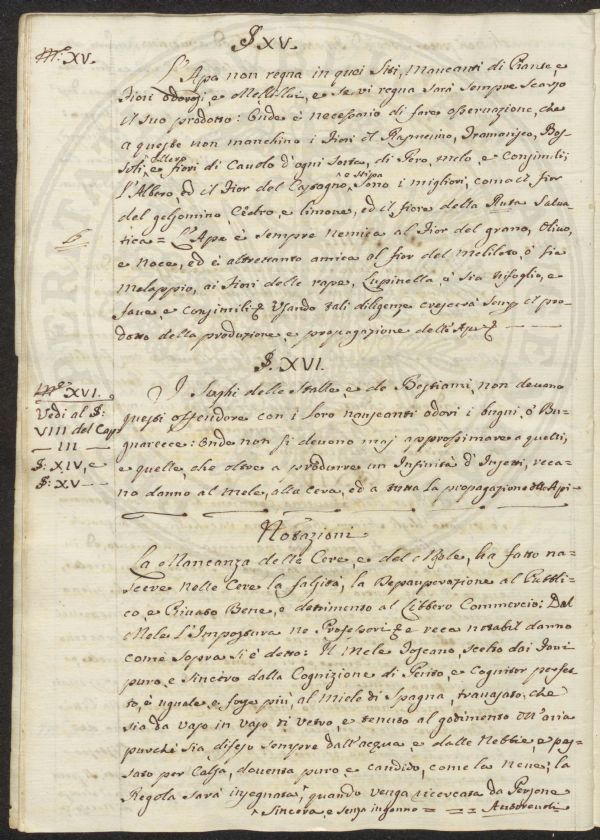 § XV.
N.º XV.
L'Apa non regna in quei Siti, Mancanti di Piante, e
Fiori odorosi, e Melliflui, e se vi regna sarà sempre Scarso
il suo prodotto: Onde è necessario di fare osservazione, che
a queste non manchino i Fiori il Ramerino, Tramarisco, Bos-
soli, ^ Ellero e fiori di Cavolo d'ogni Sorta, di Pero, melo, e Consimili;
L'Albero, ed il Fior del Castagno, ^ e Stipa Sono i migliori, come il fior
del gelsomino, Cedro, e limone, ed il fiore della Ruta Salva-
6
tica = L'Ape è sempre nemica al Fior del grano, Olivo,
e Noce, ed è altrettanto amica al fior del Meliloto, ò sia
Melappio, ai Fiori delle rape, Lupinella, ò Sia Trifoglio, e
Fave, e Consimili & Usando tali diligenze crescerà Semp il pro-
dotto della produzione, e propagazione dell'Ape &
§. XVI.
N.º XVI.
Vedi al §:
VIII del Cap:
III
§: XIV, e
§: XV
I Luoghi delle Stalle, e de Bestiami, non devono
questi offendere con i loro nauseanti odori i bugni, ò Bu-
gnarecce: Onde non si devono maj approssimare a quelli,
e quelle, che oltre a produrre un Infinità d'Insetti, reca-
no danno al Mele, alla Cera, ed a tutta la propagazione dell'Api
Notazioni
La Mancanza delle Cere, e del Mele, ha fatto na-
scere Nelle Cere la falsità, la Depauperazione al Pubbli-
co, e Privato Bene, e detrimento al Libero Commercio: Dal
Mele L'Impostura Ne Professori & e reca notabil danno
come sopra si è detto: Il Mele Toscano, scelto dai Favi
puro, e Sincero dalla Cognizione di Perito, e Cognitor perfet-
to, è uguale, e forse più, al Miele di Spagna, travasato, che
sia da Vaso in vaso di vetro, e tenuto al godimento dell'aria
purché sia difeso sempre dall'acqua, e dalle Nebbie, e pas-
sato per Calza, doventa puro, e candido, come la Neve; la
Regola sarà insegnata, quando venga ricercata da Persone
^ Sincera, e senza inganno = = = Autorevoli =